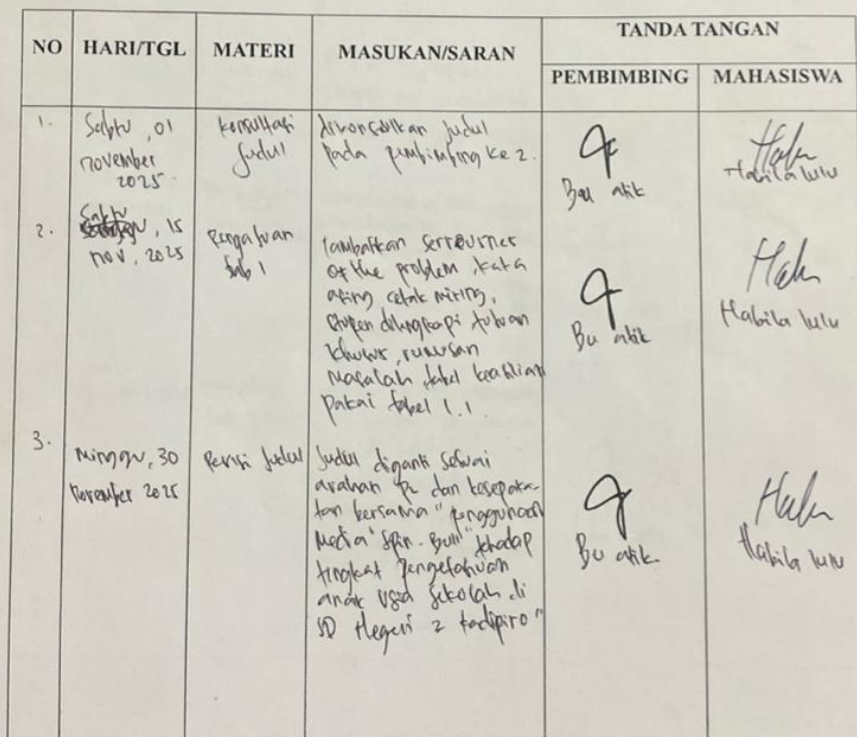 NO HARI/TGL MATERI MASUKAN/SARAN TANDA TANGAN
PEMBIMBING MAHASISWA
1. Sabtu, 01
november
2025.
konsultasi
Judul
dikonsulkan Judul
pada pembimbing ke 2.
Bu atik
Habila lulu
2. Sabtu, 15
nov, 2025
Pengajuan
bab 1
tambahkan
of the problem, kata
asing cetak miring,
dilengkapi tujuan
khusus, rumusan
masalah tabel keaslian
pakai tabel 1.1.
Bu atik
Habila lulu
3. Minggu, 30
November 2025
Revisi Judul
Judul diganti sesuai
arahan dan kesepaka-
tan bersama "penggunaan
Media "Spin-Bull" terhadap
tingkat pengetahuan
anak usia sekolah di
SD Negeri 2 kadipiro"
Bu atik
Habila lulu